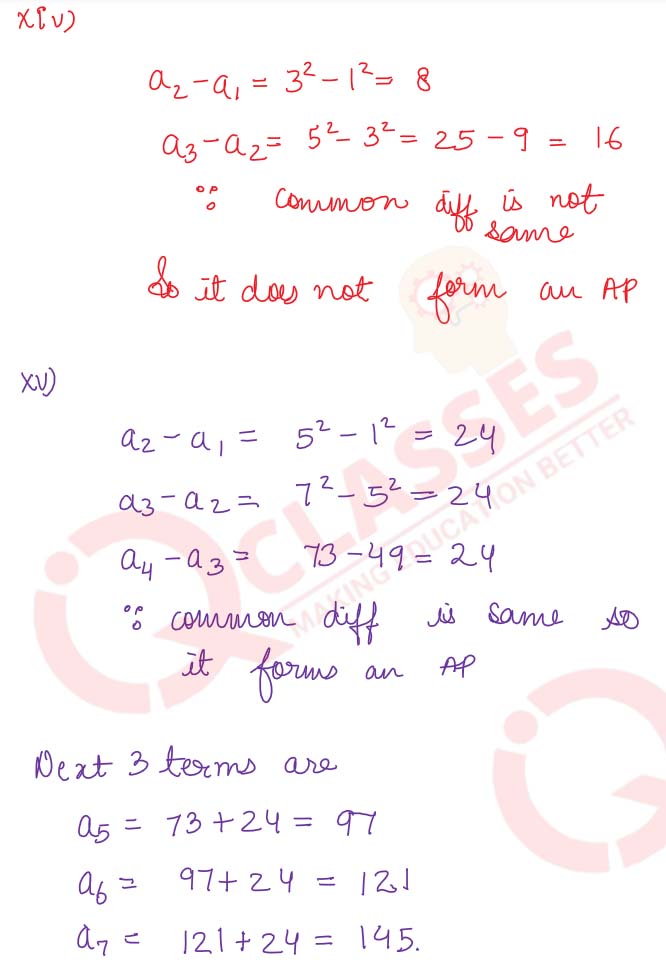 xiv)
a₂ - a₁ = 3² - 1² = 8
a₃ - a₂ = 5² - 3² = 25 - 9 = 16
∵ common diff is not
same
So it does not form an AP
xv)
a₂ - a₁ = 5² - 1² = 24
a₃ - a₂ = 7² - 5² = 24
a₄ - a₃ = 73 - 49 = 24
∵ common diff is same so
it forms an AP
Next 3 terms are
a₅ = 73 + 24 = 97
a₆ = 97 + 24 = 121
a₇ = 121 + 24 = 145.
IQ CLASSES
MAKING EDUCATION BETTER